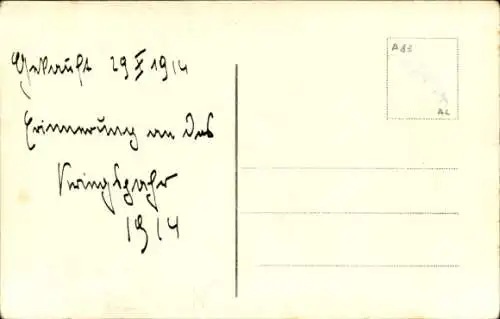 Gekauft 29 X 1914
A83
Erinnerung an das
AL
Kriegsjahr
1914